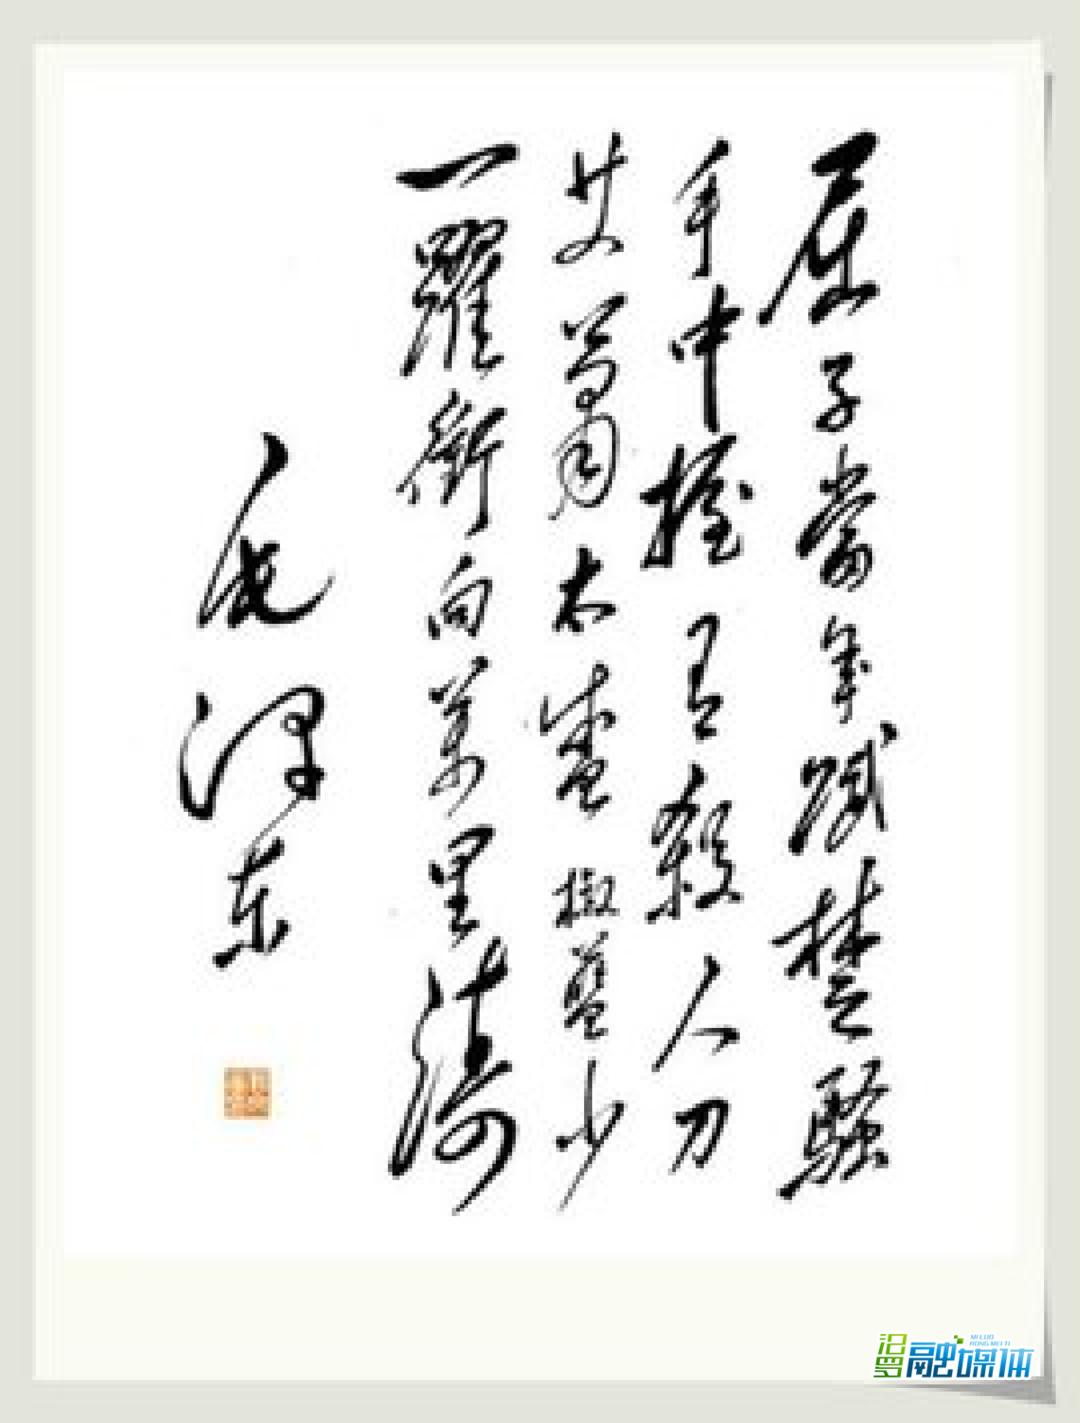 屈子當年賦楚騷
手中握有殺人刀
艾蕭太盛椒藍少
一躍衝向萬里濤
毛澤东
汨罗融媒体
MI LUO
RONG MEI TI